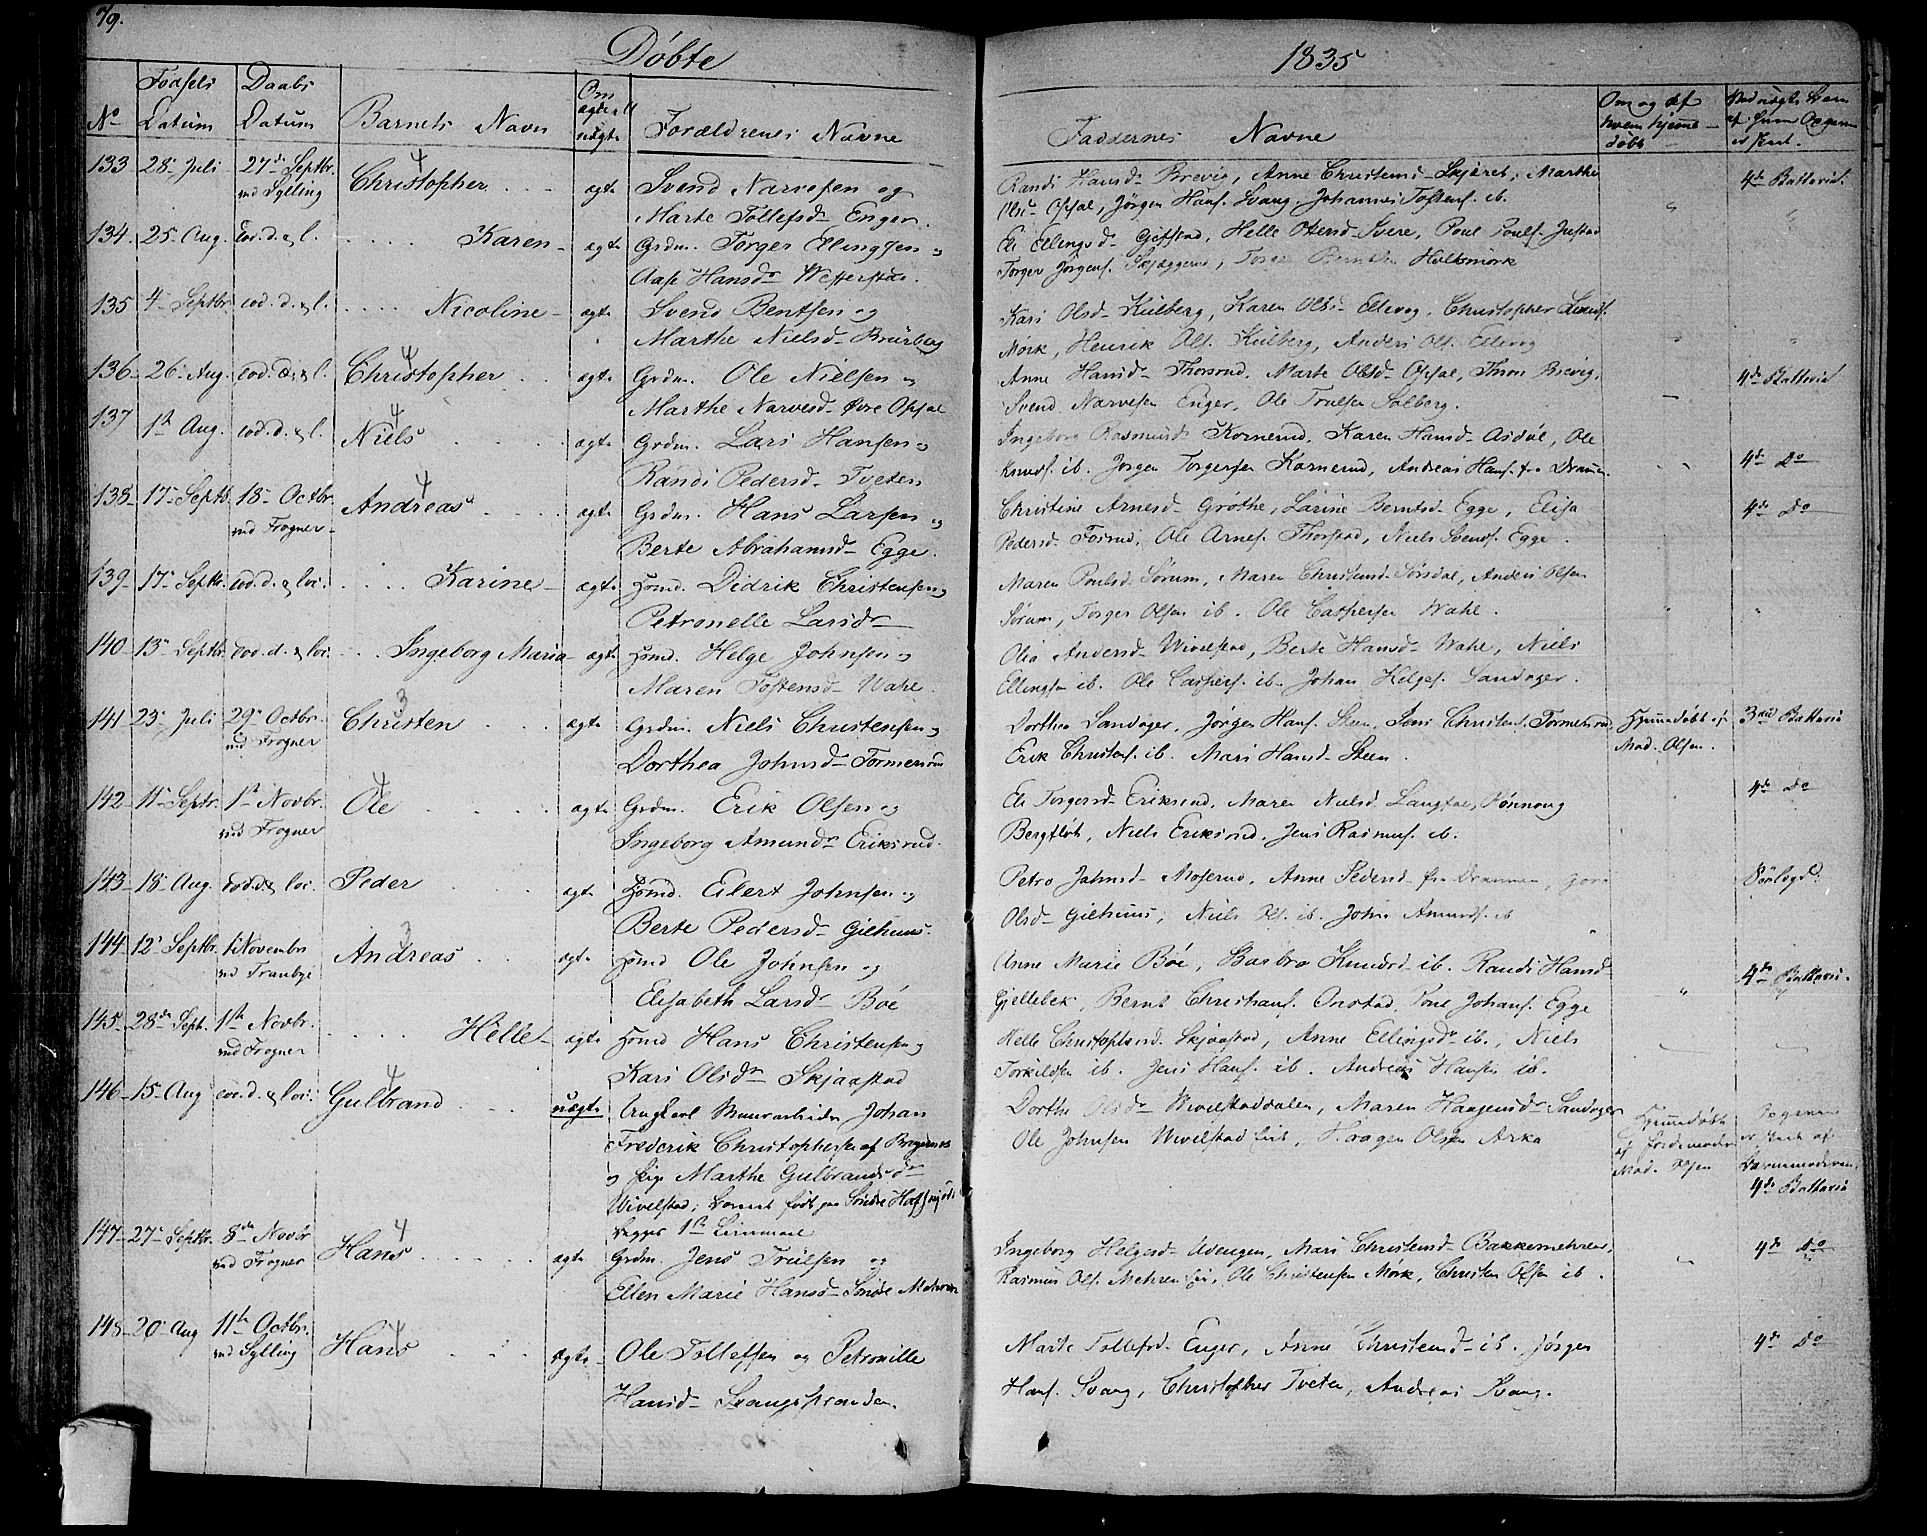 79.
Döbte
1835
No Födsels Datum Daabs Datum Barnets Navn Om ægte ell uægte Forældrenes Navne
Faddernes Navne Om og af hvem hjemme döbt
133 28 Juli 27de Septbr. ved Sylling Christopher 4 ægte Svend Narvesen og
Marte Tollefsd Enger.
Randi Hansd Brevig, Anne Christensd Skjæret, Marthe
Olsd Opsal, Jörgen Hans. Svang. Johannes Tostens. ib. 4de Battavie.
134. 25 Aug. eod. d. & l. Karen ægte Grdm. Torger Ellingsen og
Aase Hansd Wefferstad.
Eli Ellingsd Gifstad, Helle Olersd Svere, Poul Pouls. Justad
Torger Jörgens. Skjæggerud, Torger Berntsen Holtsmork
135 4 Septbr. eod. d. & l. Nicoline ægte Svend Bentsen og
Marthe Nielsd Bruberg
Kari Olsd Kulberg, Karen Olsd Ellevog, Christopher
Mörk, Henrik Ols. Kulberg, Anders Ols. Ellevog
136 26 Aug. eod. d. & l. Christopher 4 ægte Grdm. Ole Nielsen og
Marthe Narvesd Övre Opsal
Anne Hansd Thorsrud, Marte Olsd Opsal, Thron Brevig,
Svend Narvesen Enger, Ole Trulsen Solberg. 4de Battavie
137 1st Aug. eod. d. & l. Niels 4 ægte Grdm. Lars Hansen og
Randi Pedersd Tveten
Ingeborg Rasmusd Kornerud, Karen Hansd Asdöl, Ole
Knuds. ib. Jorgen Torgersen Kornerud, Andreas Hans. fra Dramen 4de Do
138 17 Septb. 18 Octbr. ved Frogner Andreas 4 ægte Grdm. Hans Larsen og
Berte Abrahamsd Egge.
Christine Arnesd Gröthe, Larine Berntsd Egge, Elisa
Pedersd Fosrud, Ole Arnes. Thorstad, Niels Svends. Egge. 4de Do
139 17 Septbr. eod. d. & loc. Karine ægte Hsmd. Didrik Christensen og
Petronelle Larsdr
Maren Poulsd Sörum, Maren Christensd Sörsdal, Anders Olsen
Sörum, Torger Olsen ib. Ole Caspersen Wahl.
140 13 Septbr. eod. d. & loc. Ingeborg Maria ægte Hsmd. Helge Johnsen og
Maren Tostensd Wahl.
Olia Andersd Wivelstad, Berte Hansd Wahl, Niels
Ellingsen ib. Ole Caspers. ib. Johan Helges. Sandager.
141 23 Juli 29 Octbr. ved Frogner Christen 3 ægte Grdm. Niels Christensen og
Dorthea Johnsd Tormersrud
Dorthea Sandager, Jörgen Hans. Steen, Jens Christens. Tormersrud
Erik Christens. ib. Mari Hansd Steen. Hjemmedöbt af Mad. Olsen. 3die Battavie
142 11 Septbr. 1st Novbr. ved Frogner Ole 4 ægte Grdm. Erik Olsen og
Ingeborg Amundsdr Eriksrud.
Eli Torgersd Eriksrud, Maren Nielsd Langsæe, Rönnoug
Bergflöt, Niels Eriksrud, Jens Rasmus. ib. 4de Do
143 18 Aug. eod. d. & loc. Peder ægte Hsmd. Eilert Johnsen og
Berte Pedersd Gilhuus.
Petro Johnsd Moserud, Anne Pedersd fra Drammen,
Olsd Gilhuus, Niels Ols. ib. John Amunds. ib
144 12 Septbr. 1 Novembr ved Tranbye Andreas 3 ægte Hsmd Ole Johnsen og
Elisabeth Larsdr Böe
Anne Marie Böe, Barbro Knudsd ib. Randi Hansd
Gjellebek, Bernt Christians. Onstad, Poul Johans. Egge 4de Battavie.
145 28de Sept. 1st Novbr. ved Frogner Helle ægte Hsmd Hans Christensen og
Kari Olsdr Skjaastad
Helle Christophersd Skjaastad, Anne Ellingsdr ib., Niels
Torkildsen ib. Jens Hans. ib. Andreas Hansen ib.
146 15 Aug eod. d. & loc. Gulbrand 4 uægte Ungkarl Muurarbeider Johan
Frederik Christophersen af Bragernes
og Pige Marthe Gulbrandsdr
Wivelstad; barnet födt paa Söndre
begges 1ste Leiermaal
Dorthe Olsdr Wivelstaddalen, Maren Haagensdr Sandager
Ole Johnsen Wivelstad Eie, Haagen Olsen Arka Hjemmedöbt af Jordemoder Mad. Olsen Opgaven er skeet af Barnemoderen. 4de Battavie
147 27 Septbr. 8de Novbr ved Frogner Hans 4 ægte Grdm. Jens Trulsen og
Ellen Marie Hansd Söndre Mehren
Ingeborg Helgesd Udengen, Mari Christensd Bakkemehren,
Rasmus Ols. Mehren Eie, Ole Christensen Mörk, Christen Olsen ib. 4de Do
148 20 Aug 11te Octbr. ved Sylling Hans 4 ægte Ole Tollefsen og Petronille
Hansd Svangstranden.
Marte Tollefsd Enger, Anne Christensd ib. Jörgen
Hans. Svang, Christopher Tveten, Andreas Svang. 4de Do